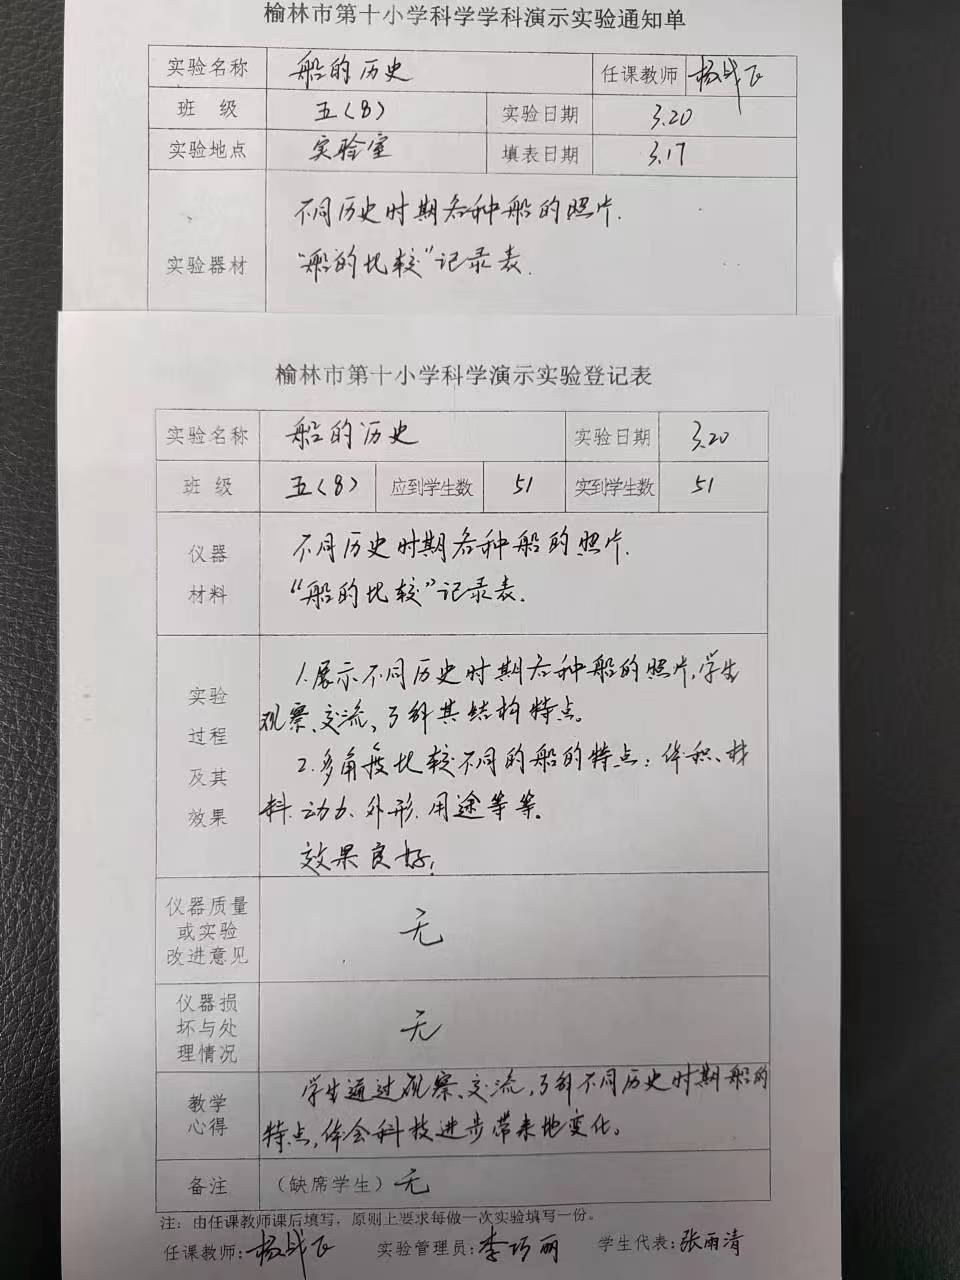 榆林市第十小学科学学科演示实验通知单
实验名称 船的历史 任课教师 杨战飞
班 级 五(8) 实验日期 3.20
实验地点 实验室 填表日期 3.17
实验器材
不同历史时期各种船的照片.
“船的比较”记录表.
榆林市第十小学科学演示实验登记表
实验名称 船的历史 实验日期 3.20
班 级 五(8) 应到学生数 51 实到学生数 51
仪器
材料
不同历史时期各种船的照片.
“船的比较”记录表.
实验
过程
及其
效果
1.展示不同历史时期各种船的照片,学生
观察、交流,了解其结构特点。
2.多角度比较不同的船的特点:体积、材
料.动力、外形.用途等等。
效果良好!
仪器质量
或实验
改进意见
无
仪器损
坏与处
理情况
无
教学
心得
学生通过观察、交流,了解不同历史时期船的
特点,体会科技进步带来地变化。
备注 (缺席学生) 无
注: 由任课教师课后填写, 原则上要求每做一次实验填写一份。
任课教师: 杨战飞 实验管理员: 李巧丽 学生代表: 张雨清